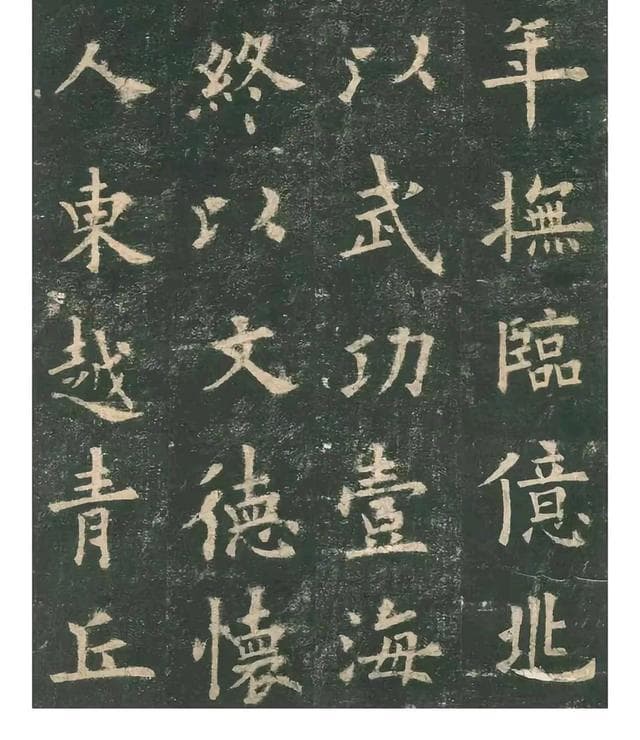 年撫臨億兆
以武功壹海
終以文德懷
人東越青丘